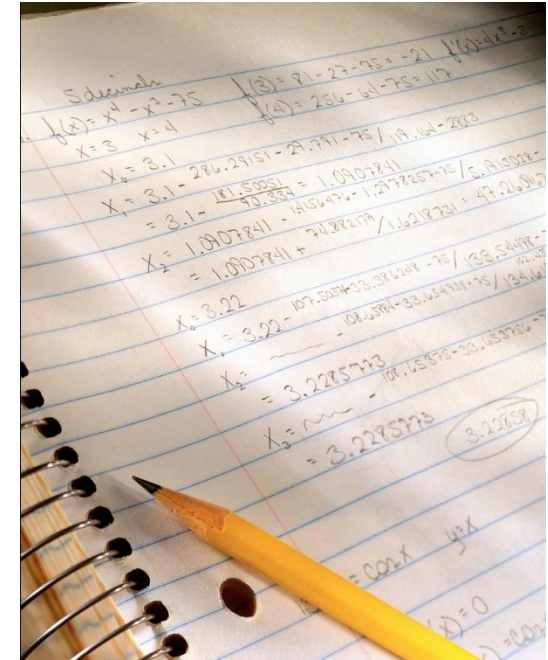 5 decimals
f(x) = x⁴ - x³ - 75 f(3) = 81 - 27 - 75 = -21 f'(x) = 4x³ - 3
x = 3 x = 4 f(4) = 256 - 64 - 75 = 117
X₀ = 3.1
X₁ = 3.1 - 286.29151 - 29.791 - 75 / 119.164 - 2883
= 3.1 - 181.50051 / 90.334 = 1.0907841
X₂ = 1.0907841 - 1.4156476 - 1.2978257 - 75 / 5.1915028 -
= 1.0907841 + 74.882179 / 1.6218731 = 47.260967
X₀ = 3.22
X₁ = 3.22 - 107.5054 - 33.386248 - 75 / 133.54498 -
X₂ = - 108.65784 - 33.654951 - 75 / 134.61
= 3.2285773 - 108.65375 - 33.653756 - 7
X₃ =
= 3.2285773 3.22858
= cosx y = x
(x) = 0
) = cos